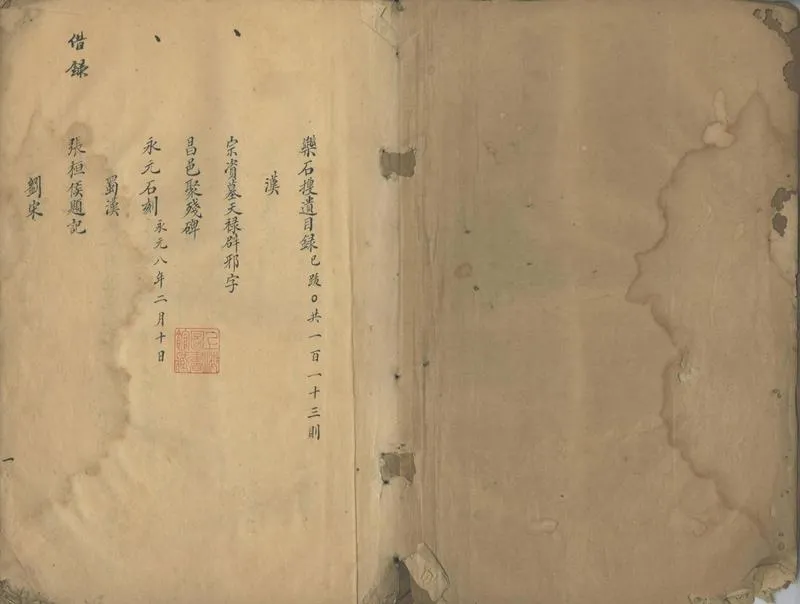 樂石搜遺目録已跋○共一百一十三則
漢
宗資墓天禄辟邪字
昌邑聚殘碑
永元石刻永元八年二月十日
蜀漢
借録
張桓侯題記
劉宋